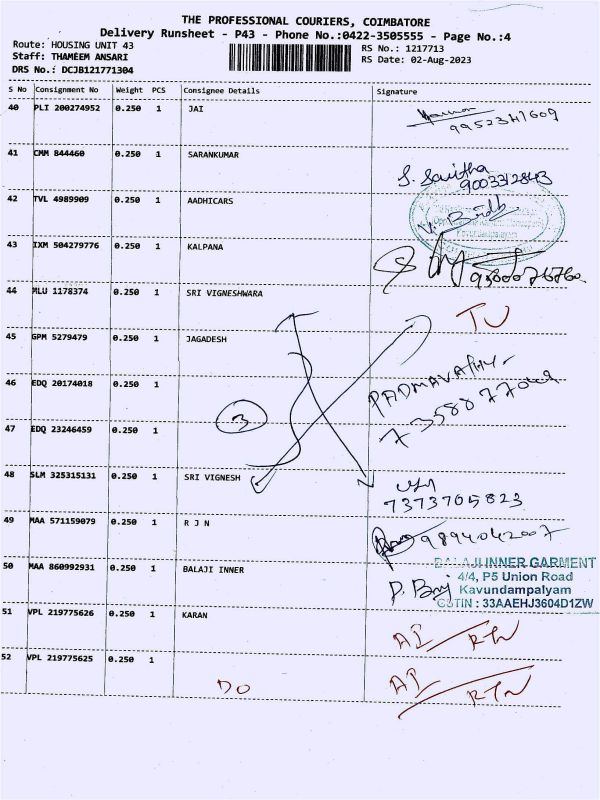 THE PROFESSIONAL COURIERS, COIMBATORE
Delivery Runsheet - P43 - Phone No.:0422-3505555 - Page No.:4
Route: HOUSING UNIT 43 RS No.: 1217713
Staff: THAMEEM ANSARI RS Date: 02-Aug-2023
DRS No.: DCJB121771304
S No Consignment No Weight PCS Consignee Details Signature
40 PLI 200274952 0.250 1 JAI
41 CMM 844460 0.250 1 SARANKUMAR
S. Savitha
9003312843
42 TVL 4989909 0.250 1 AADHICARS
Kavundampalayam
43 IXM 504279776 0.250 1 KALPANA
44 MLU 1178374 0.250 1 SRI VIGNESHWARA
45 GPM 5279479 0.250 1 JAGADESH
46 EDQ 20174018 0.250 1
PADMAVATHY
3
47 EDQ 23246459 0.250 1
48 SLM 325315131 0.250 1 SRI VIGNESH
7373705823
49 MAA 571159079 0.250 1 R J N
9894042007
50 MAA 860992931 0.250 1 BALAJI INNER
BALAJI INNER GARMENT
4/4, P5 Union Road
Kavundampalyam
GSTIN : 33AAEHJ3604D1ZW
51 VPL 219775626 0.250 1 KARAN
52 VPL 219775625 0.250 1
DO